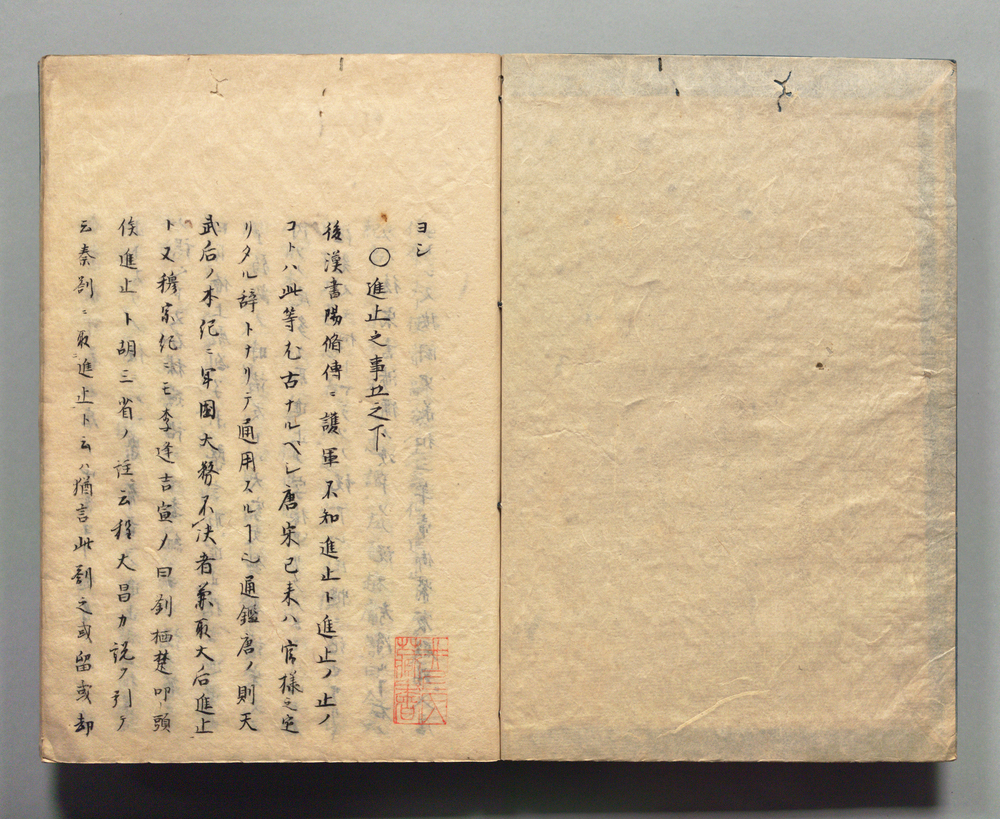 ヨシ
〇進止之事五之下
後漢書陽脩傳ニ護軍不知進止ト進止ノ止ノ
コトハ此等尤古ナルベシ唐宋已来ハ官様之定
リタル辞トナリテ通用スルヿ也通鑑唐ノ則天
武后ノ本紀ニ軍國大務不决者兼取天后進止
ト又穆宗紀ニモ李逢吉宣ノ曰劉栖楚叩頭
俟進止ト胡三省ノ註云程大昌カ説ヲ引テ
云奏劄ニ取進止ト云ハ猶言此劄之或留或却